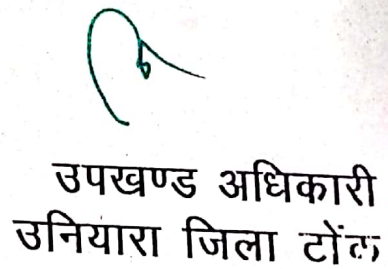 उपखण्ड अधिकारी
उनियारा जिला टोंक